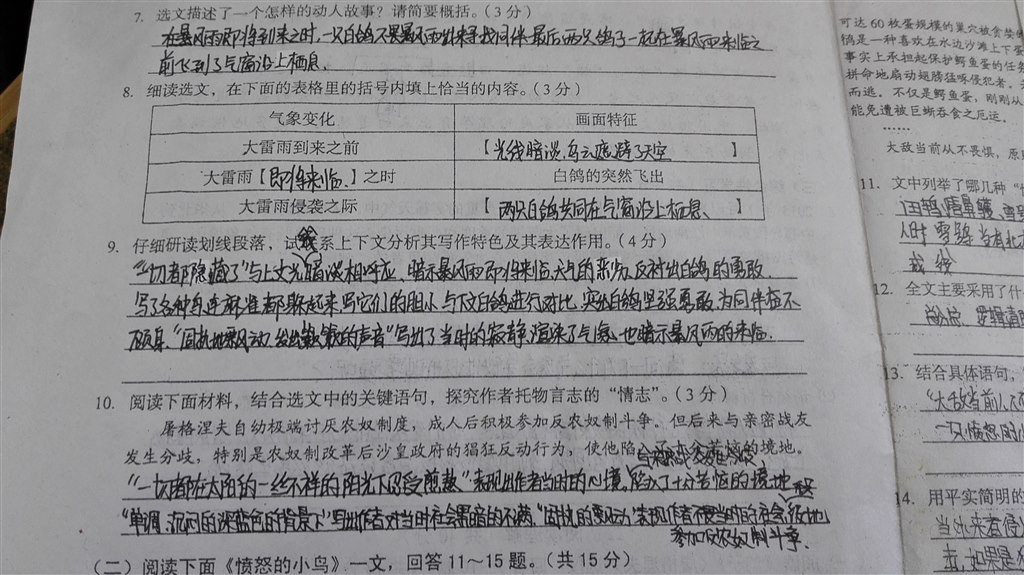 7. 选文描述了一个怎样的动人故事?请简要概括。(3分)
在暴风雨即将到来之时,一只白鸽不畏暴风雨出来寻找同伴,最后两只鸽子一起在暴风雨来临之
前飞到了气窗沿上栖息。
8. 细读选文,在下面的表格里的括号内填上恰当的内容。(3分)
气象变化 画面特征
大雷雨到来之前 【光线暗淡,乌云遮蔽了天空 】
大雷雨【即将来临、】之时 白鸽的突然飞出
大雷雨侵袭之际 【两只白鸽共同在气窗沿上栖息、 】
9. 仔细研读划线段落,试联系上下文分析其写作特色及其表达作用。(4分)
“一切都隐藏了”与上文光暗淡相呼应,暗示暴风雨即将来临,天气的恶劣,反衬出白鸽的勇敢.
写了各种鸟连麻雀都躲起来,写它们的胆小,与下文白鸽进行对比,突出白鸽坚强勇敢,为同伴奋不
顾身.“固执地飘动,发出软软的声音”写出了当时的寂静,渲染了气氛,也暗示暴风雨的来临.
10. 阅读下面材料,结合选文中的关键语句,探究作者托物言志的“情志”。(3分)
屠格涅夫自幼极端讨厌农奴制度,成人后积极参加反农奴制斗争。但后来与亲密战友
发生分歧,特别是农奴制改革后沙皇政府的猖狂反动行为,使他陷 的境地。
“一切都在太阳的一丝不祥的阳光下忍受煎熬”表现出作者当时的心境,陷入了十分苦恼的境地
“单调、沉闷的深蓝色的背景下”写出作者对当时社会黑暗的不满,“固执的飘动”表现作者不畏当时的社会积极地
参加反农奴制斗争.
(二)阅读下面《愤怒的小鸟》一文,回答11~15题。(共15分)
可达60枚蛋规模的巢穴被食
是一种喜欢在水边沙滩上下蛋
事实上承担起保护鳄鱼蛋的任务
拼命地扇动翅膀猛啄侵犯者,
而逃。不仅是鳄鱼蛋,刚刚从
能免遭被巨蜥吞食之厄运。
……
大敌当前从不畏惧,原
11. 文中列举了哪几种“
12. 全文主要采用了什
13. 结合具体语句,
“大敌当前从不
一双愤怒的
14. 用平实简明的